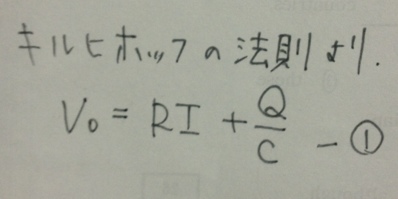 キルヒホッフの法則より.
V₀ = RI + Q/C ー①